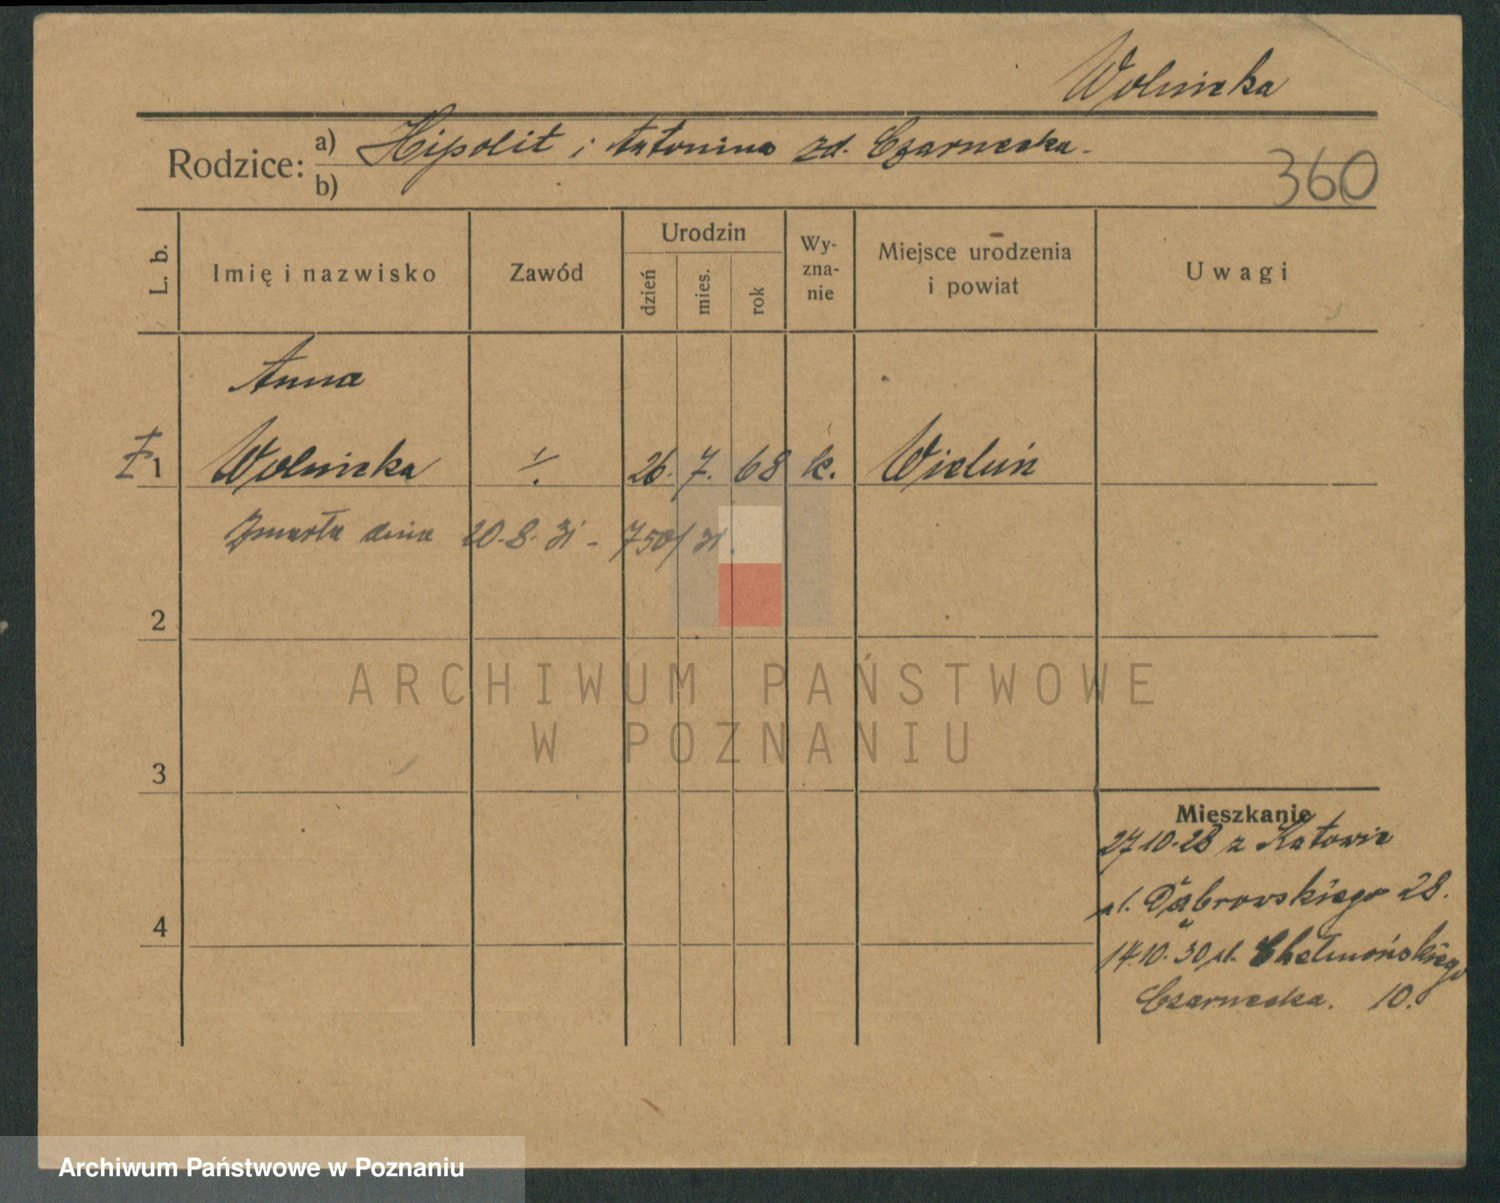 Wolnicka
Rodzice: a) Hipolit i Antonina zd. Czarnecka.
b)
360
L. b.
Imię i nazwisko
Zawód
Urodzin
dzień
mies.
rok
Wy-
zna-
nie
Miejsce urodzenia
i powiat
Uwagi
Anna
1 Wolnicka 26. 7. 68 k. Wieluń
Zmarła dnia 20.8.31 - 750/31.
2
ARCHIWUM PAŃSTWOWE
W POZNANIU
3
Mieszkanie
27.10.28 z Katowic
ul. Dąbrowskiego 28.
4
14.10.30 ul. Chełmońskiego
Czarnecka. 10.
Archiwum Państwowe w Poznaniu